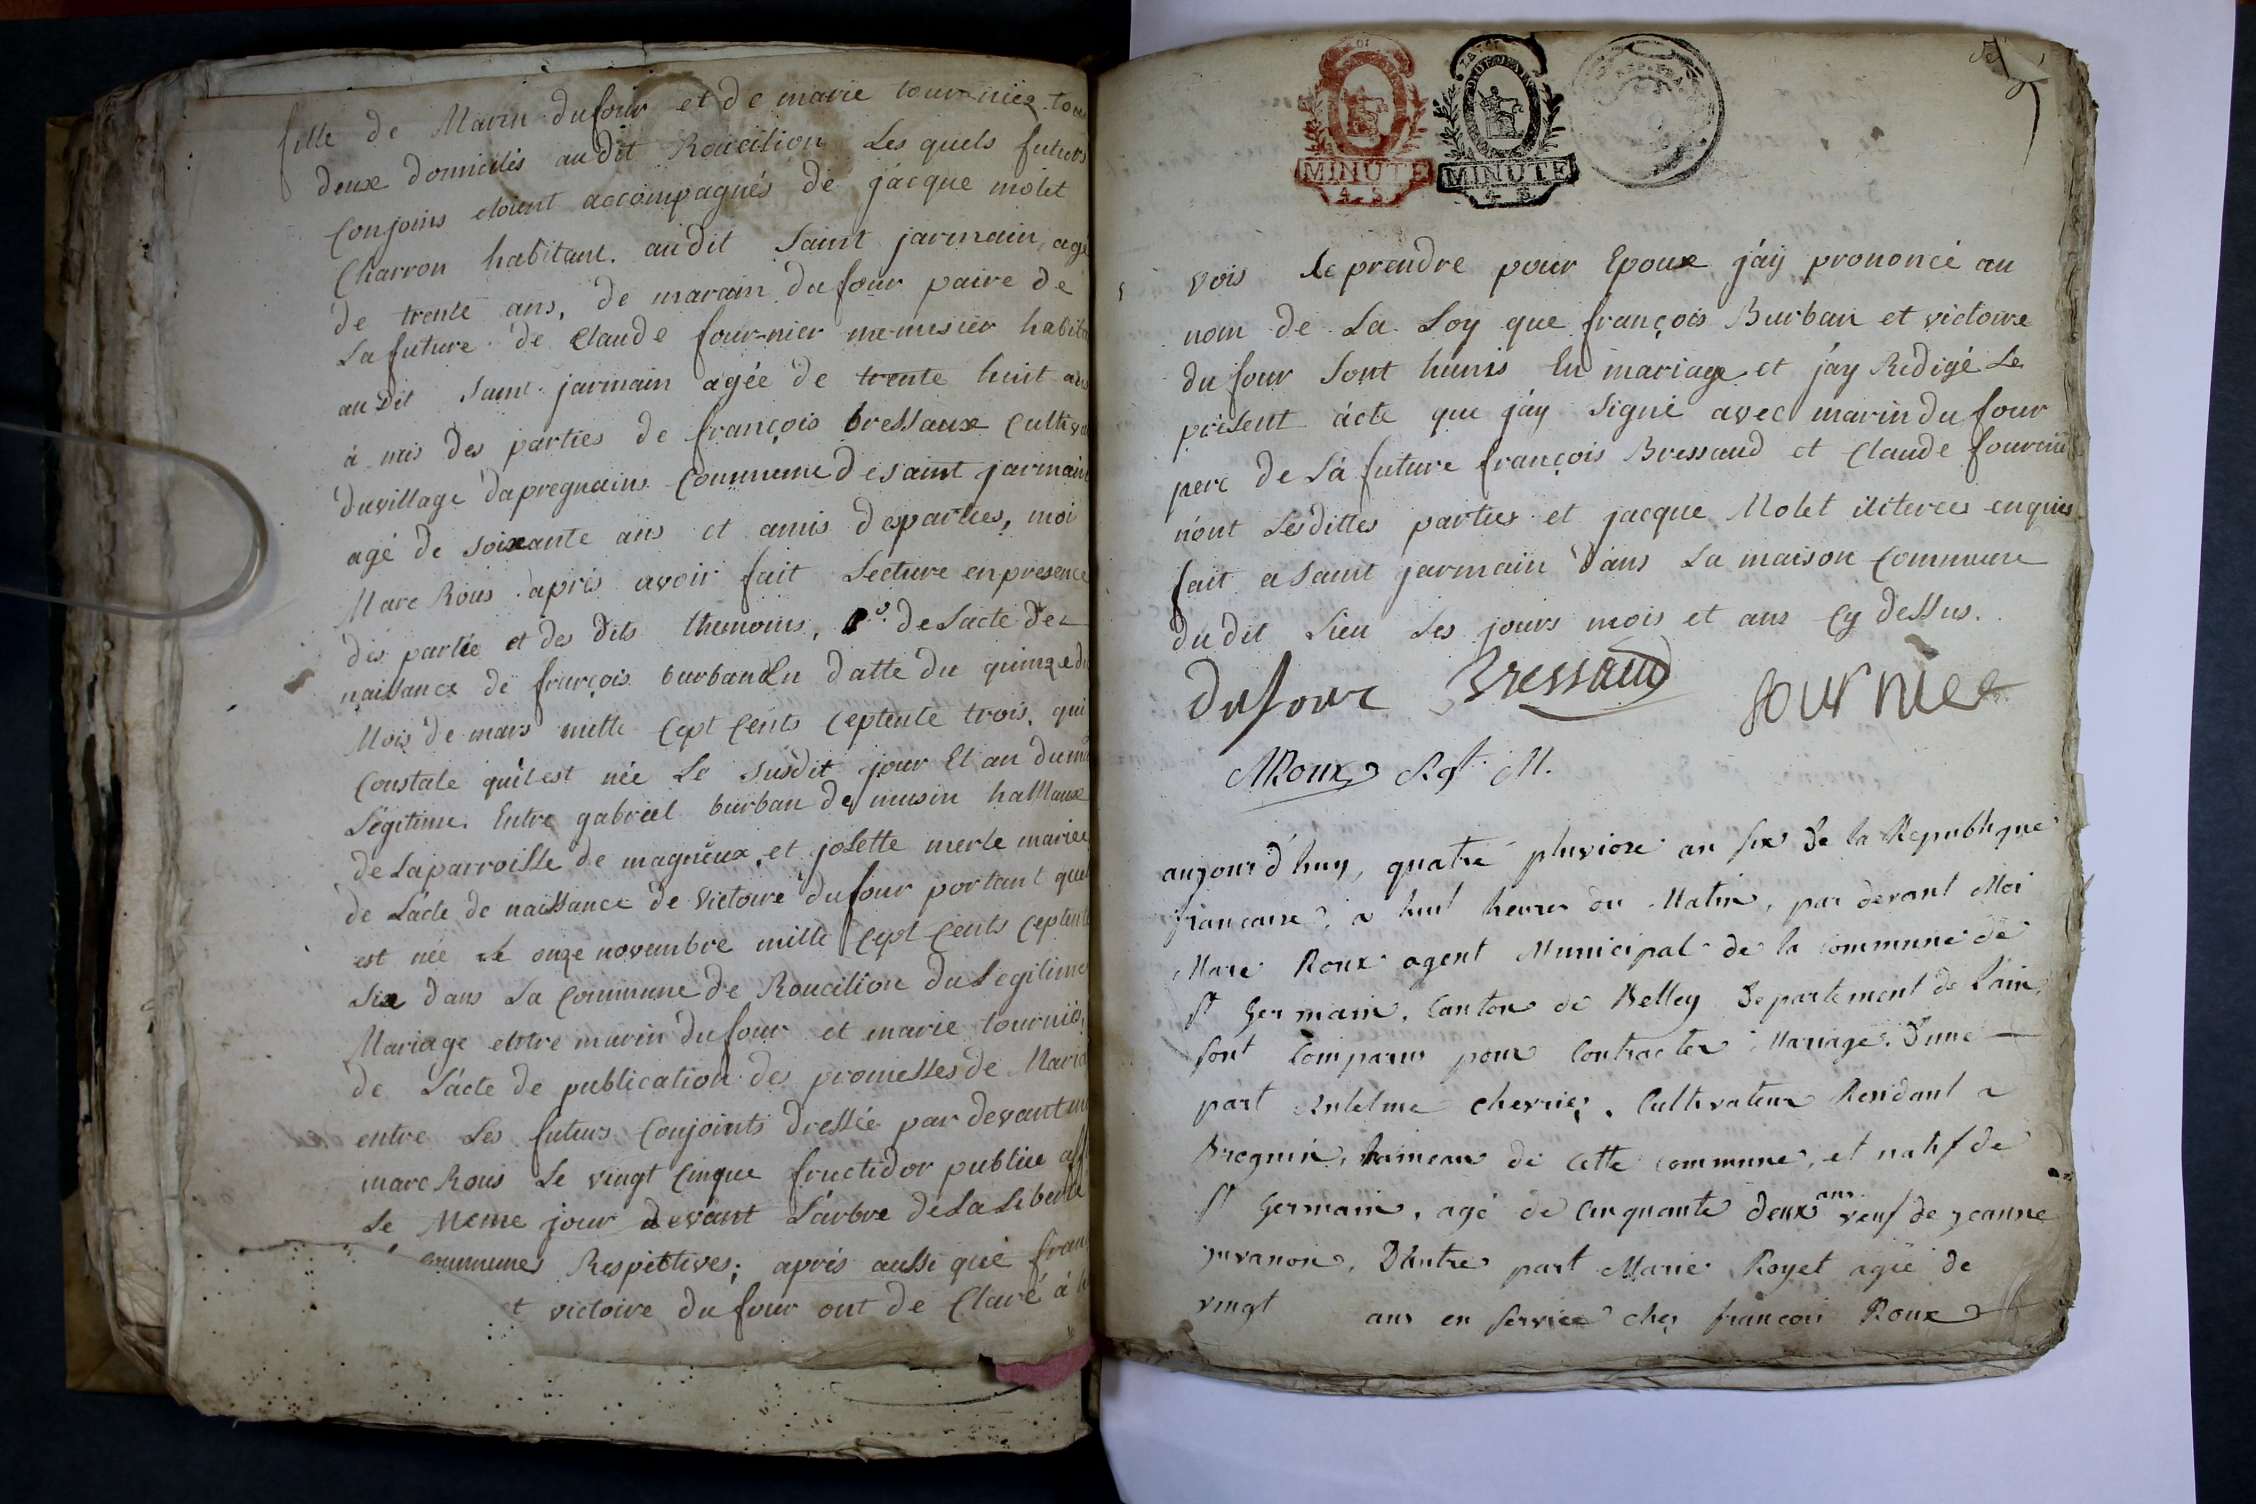 fille de Marin dufour et de marie tournier tou
deux domicilés audit Roucilion Les quels futurs
Conjoins etoient accompagnés de jácque molet
Charron habitant. audit Saint jarmain agé
de trente ans, de marain dufour paire de
La future de Claude four-nier menusier habita
audit Saint jarmain agée de trente huit ans
à mis des parties de françois bressaux Cultiva
du village dapregnains Commune de saint jarmain
agé de soixante ans et amis des parties, moi
Marc Rous aprés avoir fait Lecture en presence
des partie et des dits themoins, 1º. de Lacte de
naissance de françois burban En datte du quinze du
Mois de mars mille Cept Cents Ceptente trois, qui
Constate qu'il est née Le susdit jour Et an du ma
Légitime. Entre gabriel burban de musin
de Laparroisse de magnieux, et josette merle mariée
de Lácte de naissance de Victoire dufour portant que
est née le onze novembre mille Cept Cents Ceptente
Six dans La Commune de Roucilion du Legitime
Mariage entre marin dufour et marie tourniér,
de Lácte de publication des promesses de Maria
entre Les futurs Conjoints dressée par devant m
marc Rous Le vingt Cinque fructidor publiée aff
Le Meme jour devant Lárbre de La Liberté
communes Respéctives; aprés aussi que fran
et victoire dufour ont de Claré à h
MINUTE
4. S.
MINUTE
4. S.
vois le prendre pour Epoux jáy prononcé au
nom de La Loy que françois Burban et victoire
dufour Sont hunis En mariage et jáy Redigé Le
présent ácte que jáy signé avec marin dufour
pere de Lá future françois Bressaud et Claude fournié
n'ont Lesdittes parties et jacque Molet iliterees enquies
fait a Saint jarmain dans La maison Commune
du dit Lieu Les jours mois et ans Cy dessus.
dufour Bressaud fournier
MRoux Agt M.
aujourd'huy, quatre pluviose an six de la Republique
francaise, a huit heures du Matin, par devant Moi
Marc Roux agent Municipal de la commune de
St Germain, Canton de Belley Departement de L'ain,
sont Comparus pour Contracter Mariage. D'une
part Antelme chevrier, Cultivateur Rendant a
Brognin, hameau de cette commune, et natif de
St Germain, agé de Cinquante deux ans veuf de jeanne
juvanon, D'autre part Marie Royet agée de
vingt ans en service chez francois Roux